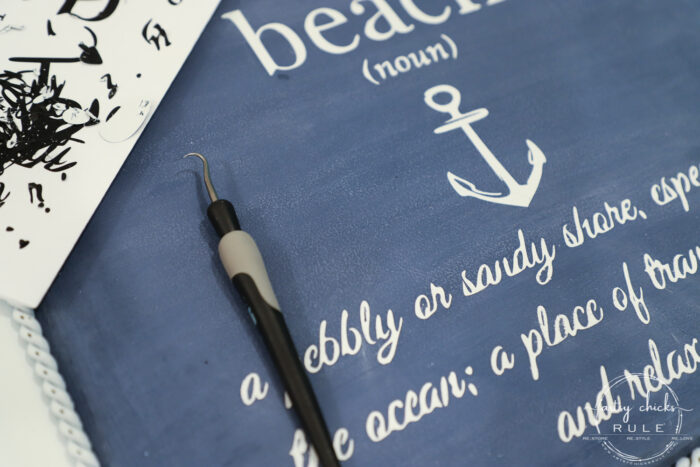 beach
(noun)
a pebbly or sandy shore, espe
the ocean; a place of tran
and relax
salty chicks
RULE
RE.STORE RE.STYLE RE.LOVE